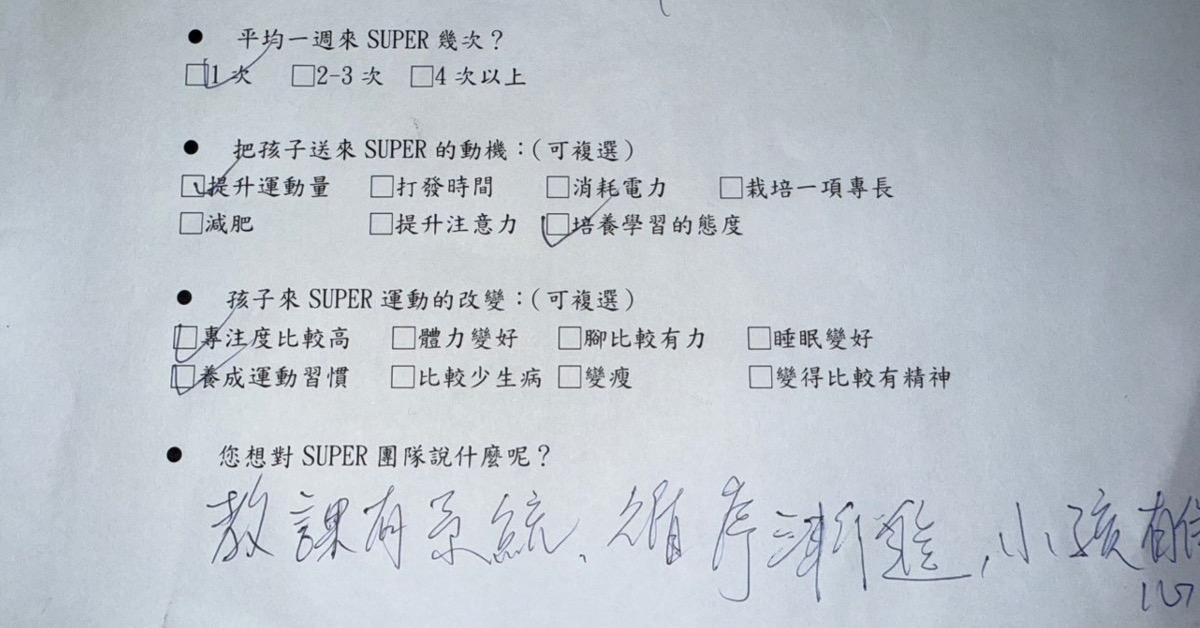 ● 平均一週來 SUPER 幾次？
□1 次 □2-3 次 □4 次以上
● 把孩子送來 SUPER 的動機：(可複選)
□提升運動量 □打發時間 □消耗電力 □栽培一項專長
□減肥 □提升注意力 □培養學習的態度
● 孩子來 SUPER 運動的改變：(可複選)
□專注度比較高 □體力變好 □腳比較有力 □睡眠變好
□養成運動習慣 □比較少生病 □變瘦 □變得比較有精神
● 您想對 SUPER 團隊說什麼呢？
教課有系統、循序漸進,小孩有